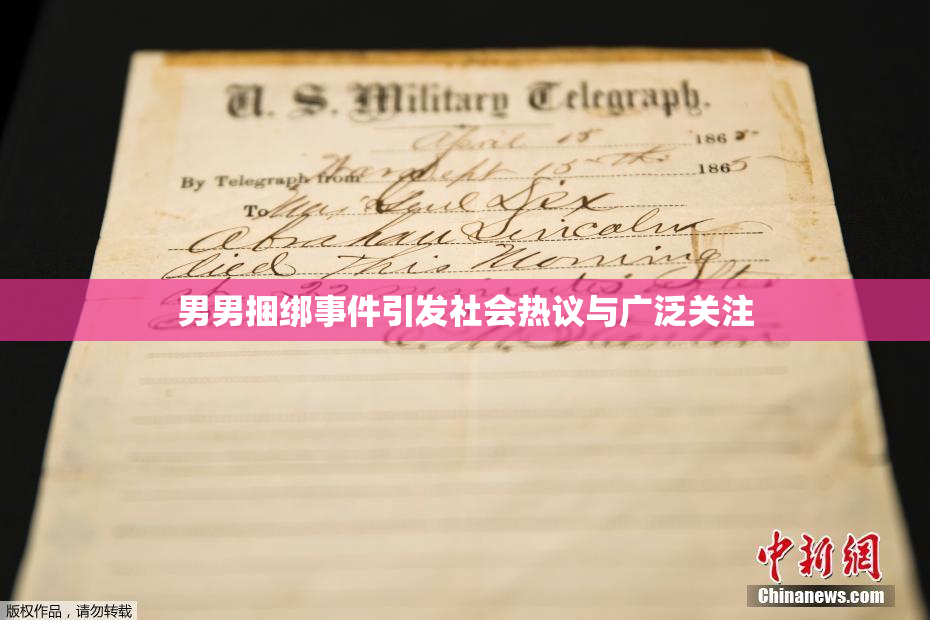 U. S. Military Telegraph.
April 15 1865
By Telegraph from War Dept 15th 1865
To Maj Genl Dix
Abraham Lincoln
died This Morning
at 22 minutes after
男男捆绑事件引发社会热议与广泛关注
E. M. Stanton
中新网
Chinanews.com
版权作品，请勿转载